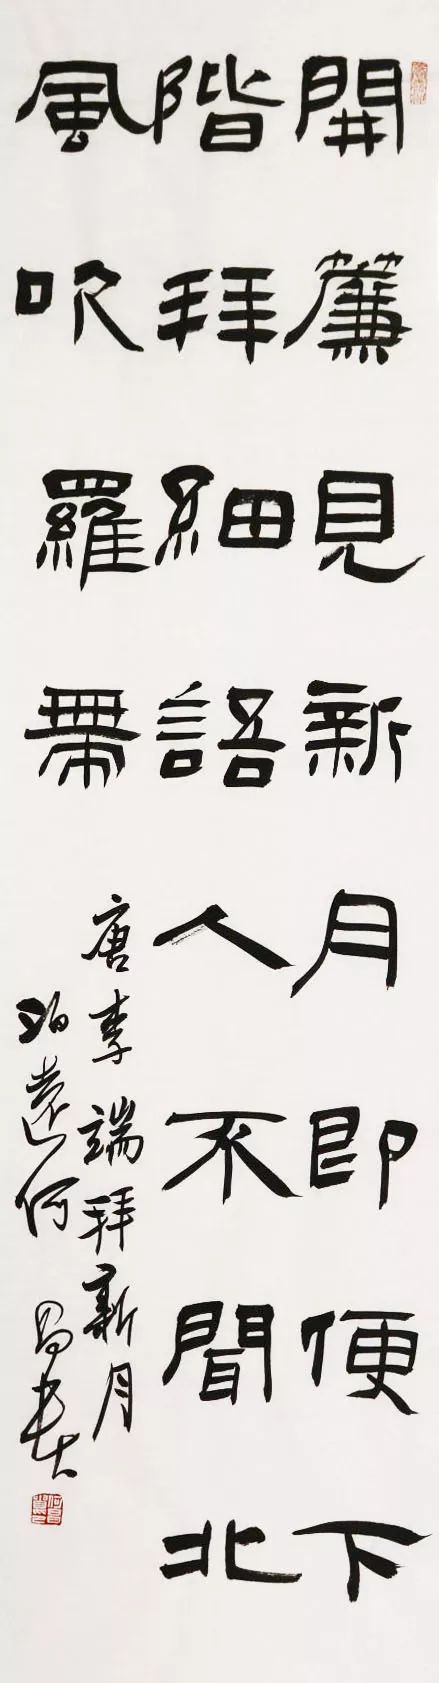 開簾見新月即便下
階拜細語人不聞北
風吹羅帶
唐李端拜新月
泊遠何昌貴